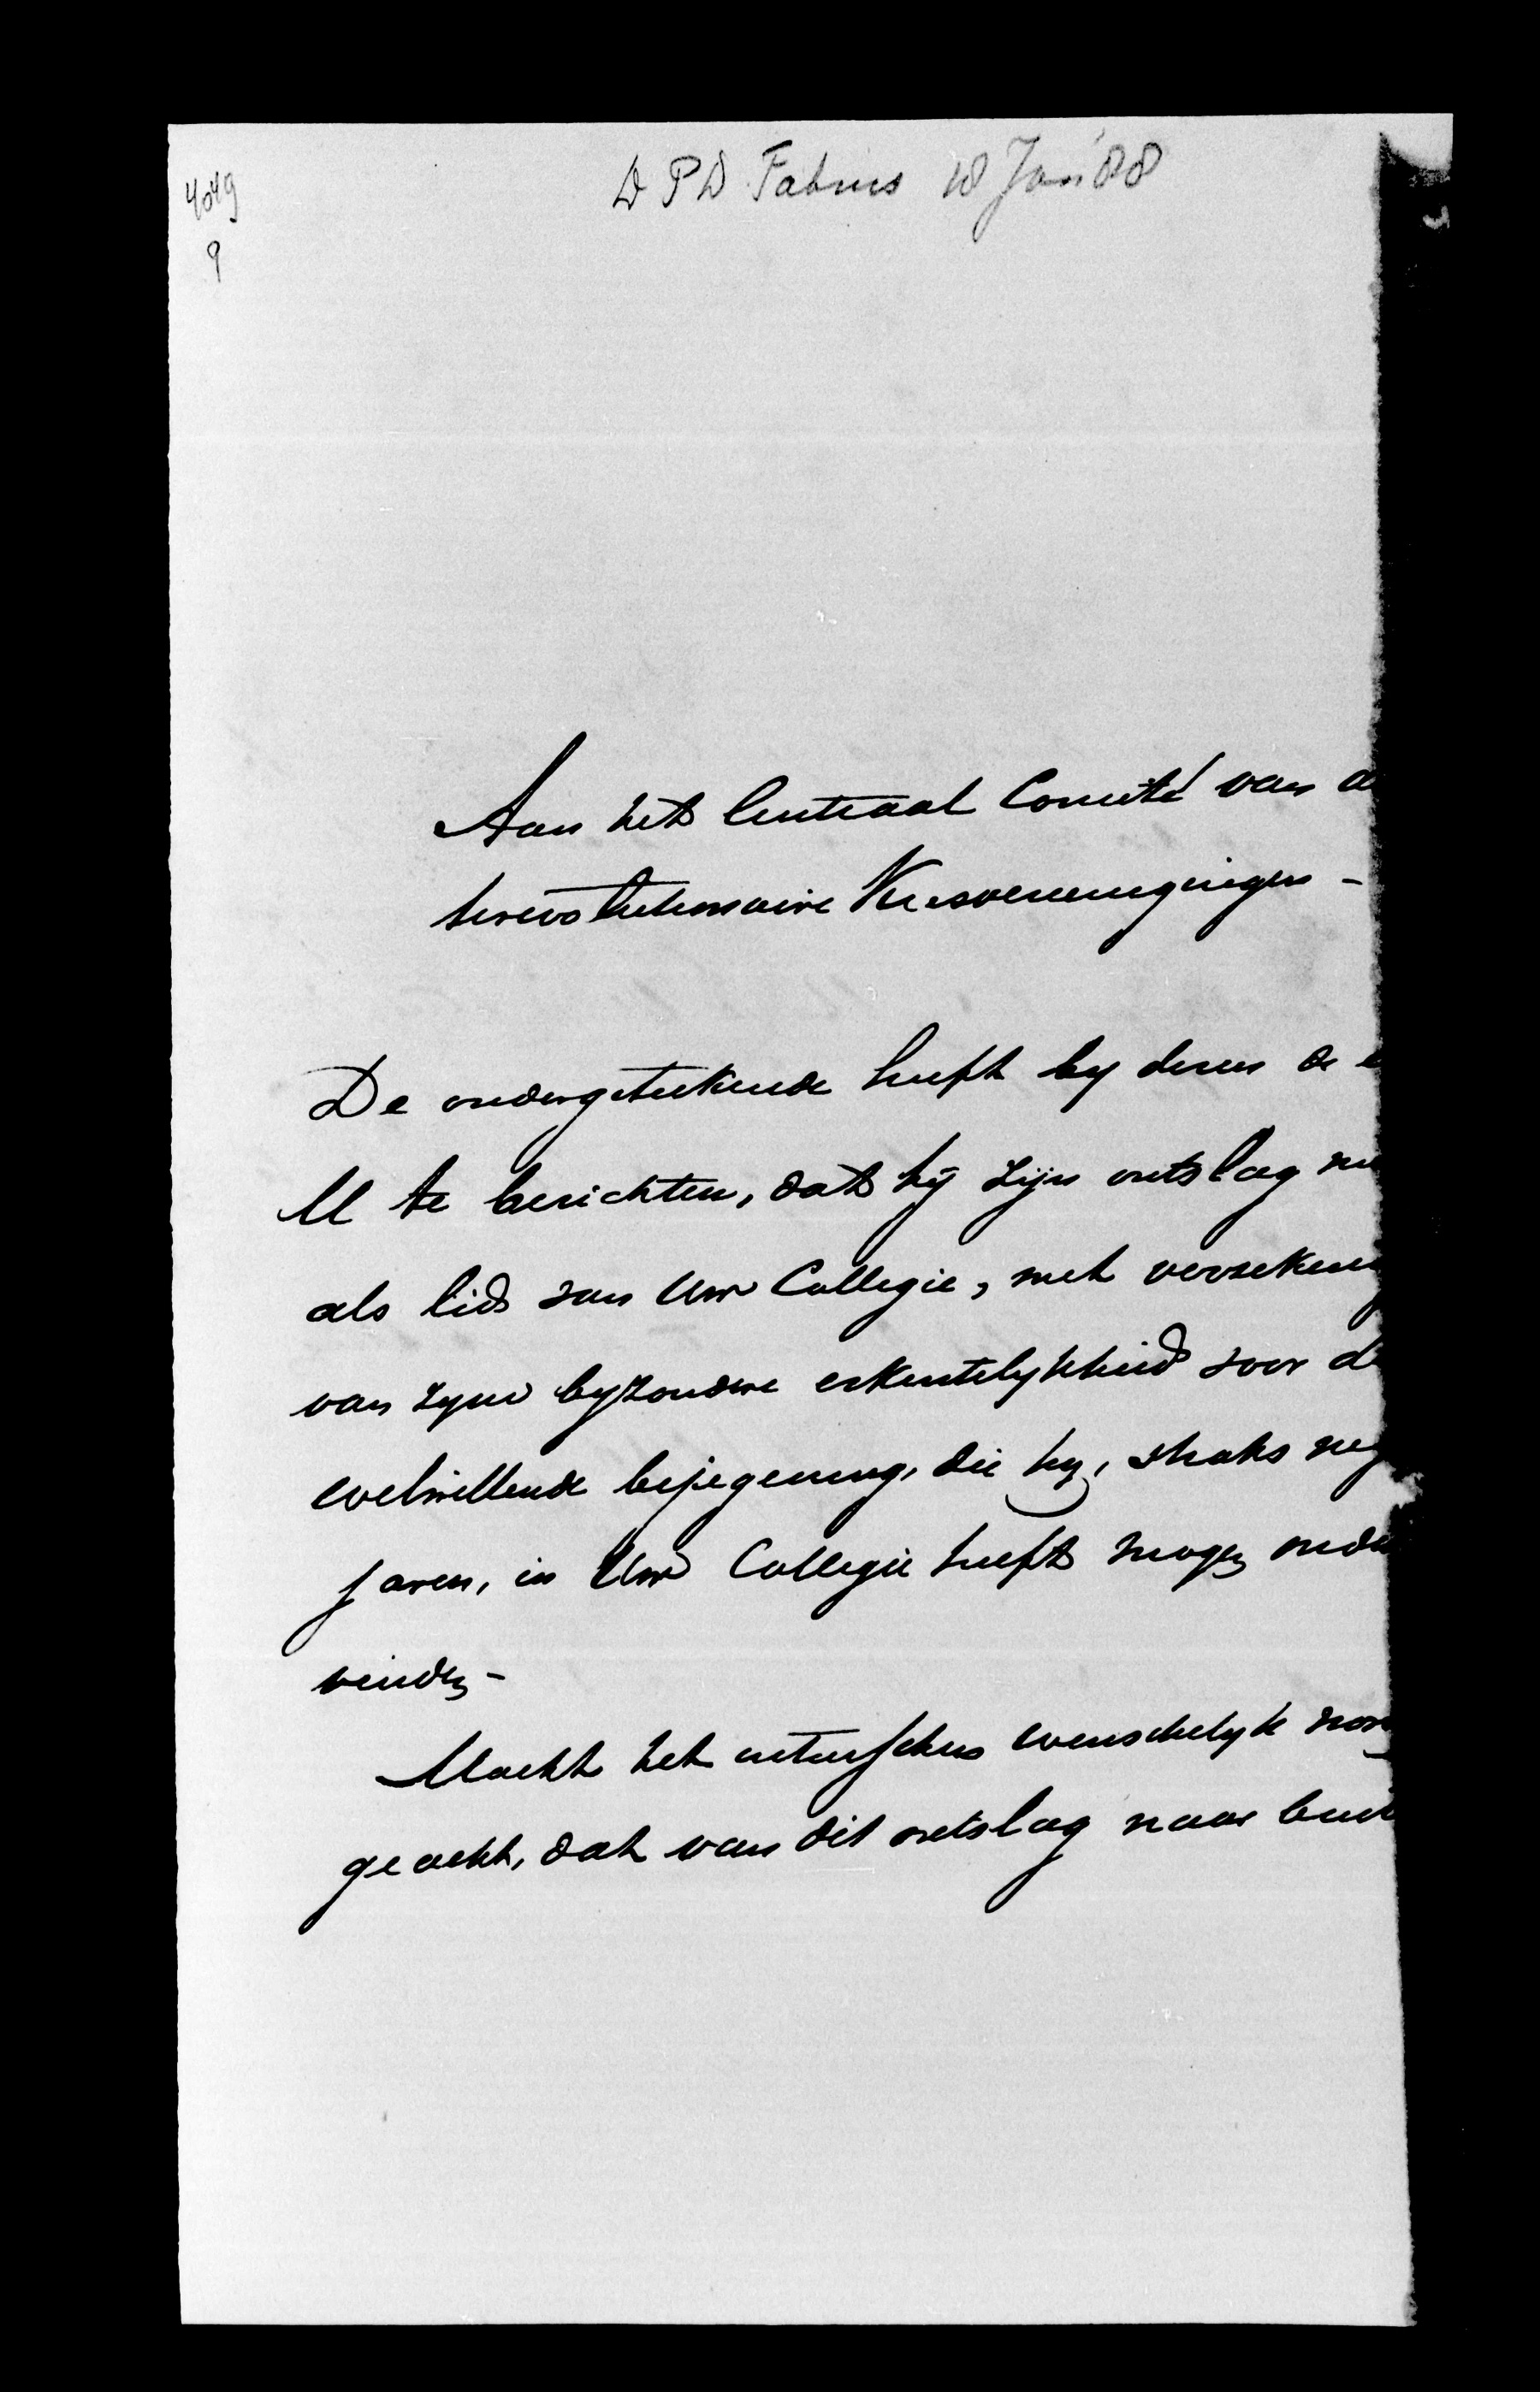 4049
9
D P D Fabius 18 Jan '88
Aan het Centraal Comité van
tirevolutionaire Kiesvereenigingen -
De ondergeteekende heeft by dezen de e
U te berichten, dat hij zijn ontslag
als lid van Uw Collegie, met verzekering
van zyne byzondere erkentelykheid voor de
welwillende bejegening, die hy, straks
jaren, in Uw Collegie heeft mogen onder
vinden -
Mocht het intusschen wenschelyk
geacht, dat van dit ontslag naar buit